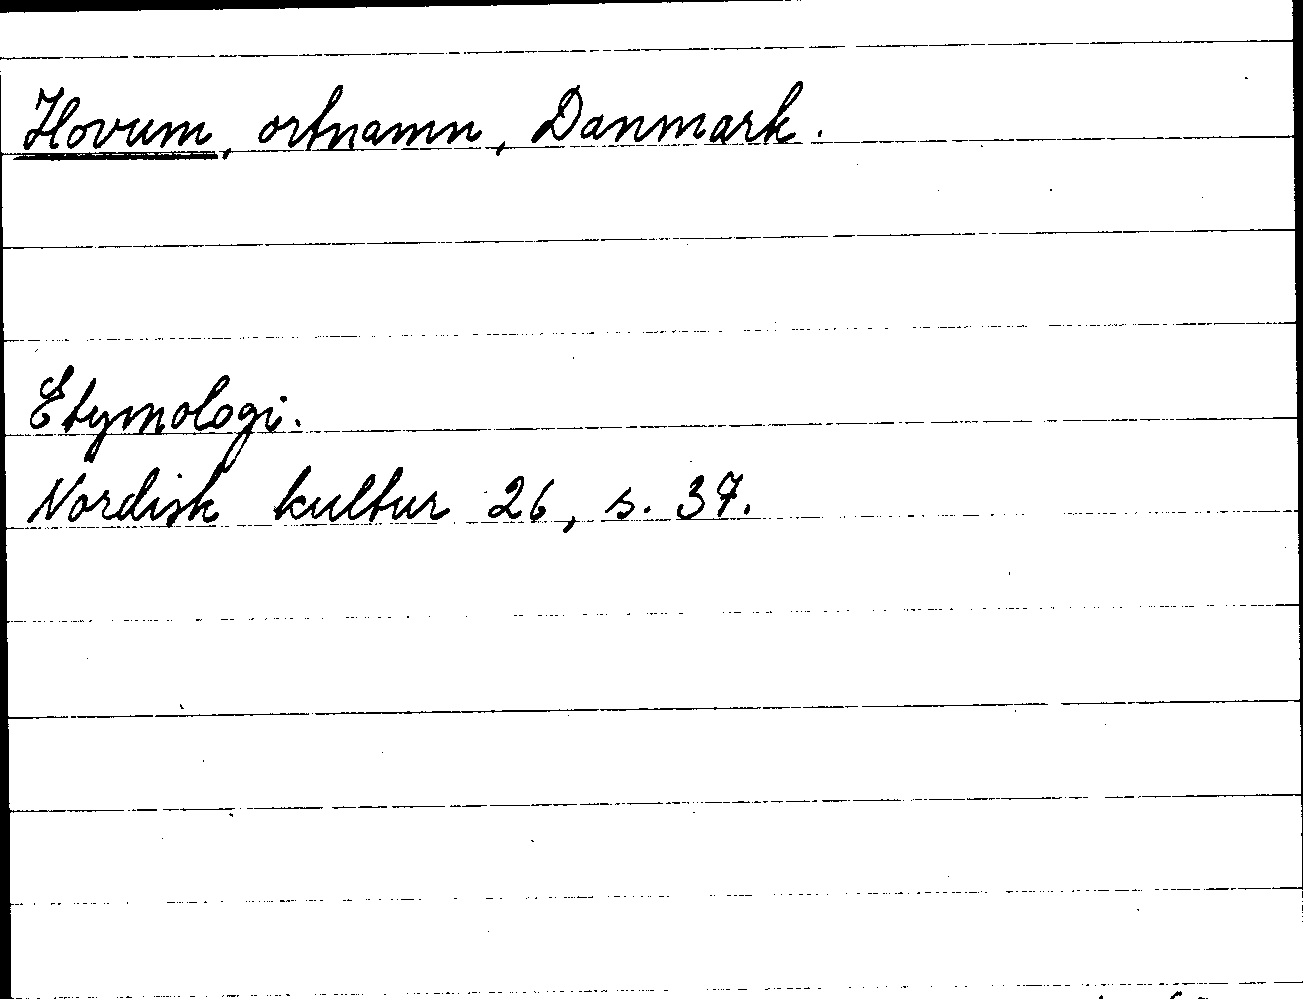 Hovum, ortnamn, Danmark.
Etymologi.
Nordisk kultur 26, s. 37.